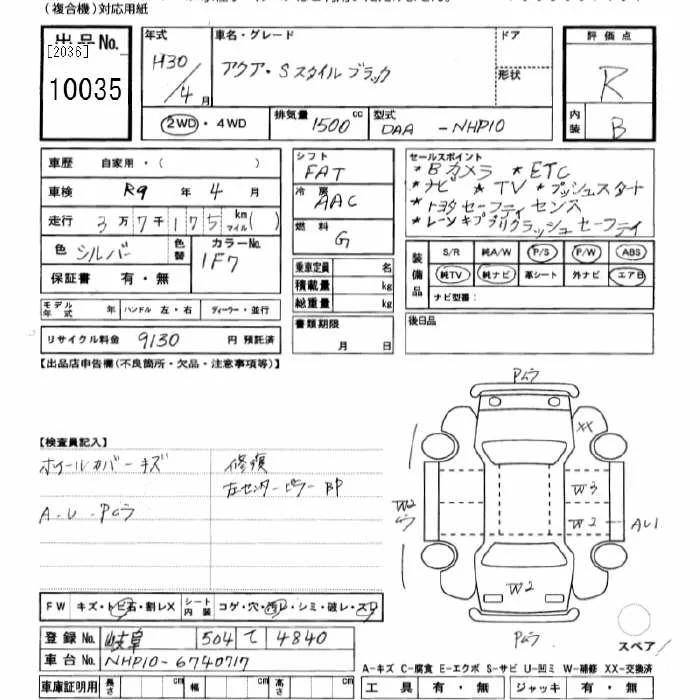 (複合機)対応用紙
出品No.
[2036]
10035
年式 H30/4月
車名・グレード
アクア・Sスタイルブラック
ドア
形状
評価点
R
内装 B
2WD・4WD
排気量 1500 cc
型式 DAA -NHP10
車歴 自家用・( )
車検 R9 年 4 月
走行 3万7千175 km マイル( )
色 シルバー
色替
カラーNo. 1F7
保証書 有・無
シフト FAT
冷房 AAC
燃料 G
乗車定員 名
積載量 kg
総重量 kg
セールスポイント
*Bカメラ *ETC
*ナビ *TV *プッシュスタート
*トヨタセーフティセンス
装備品 S/R 純A/W P/S P/W ABS
純TV 純ナビ 革シート 外ナビ エアB
ナビ型番:
モデル年式 年 ハンドル 左・右 ディーラー・並行
書類期限
月 日
後日品
リサイクル料金 9130 円 預託済
【出品店申告欄(不良箇所・欠品・注意事項等)】
【検査員記入】
ホイールカバーキズ
修復
左センターピラー BP
A.U.Pムラ
Pムラ
XX
W3
W2
ムラ
W2
AU1
W2
Pムラ
スペア
FW キズ・トビ石・割レX シート内装 コゲ・穴・汚レ・シミ・破レ・スレ
登録No. 岐阜 504 て 4840
車台No. NHP10-6740717
A-キズ C-腐食 E-エクボ S-サビ U-凹ミ W-補修 XX-交換済
車庫証明用 長さ cm 幅 cm 高さ cm
工具 有・無 ジャッキ 有・無